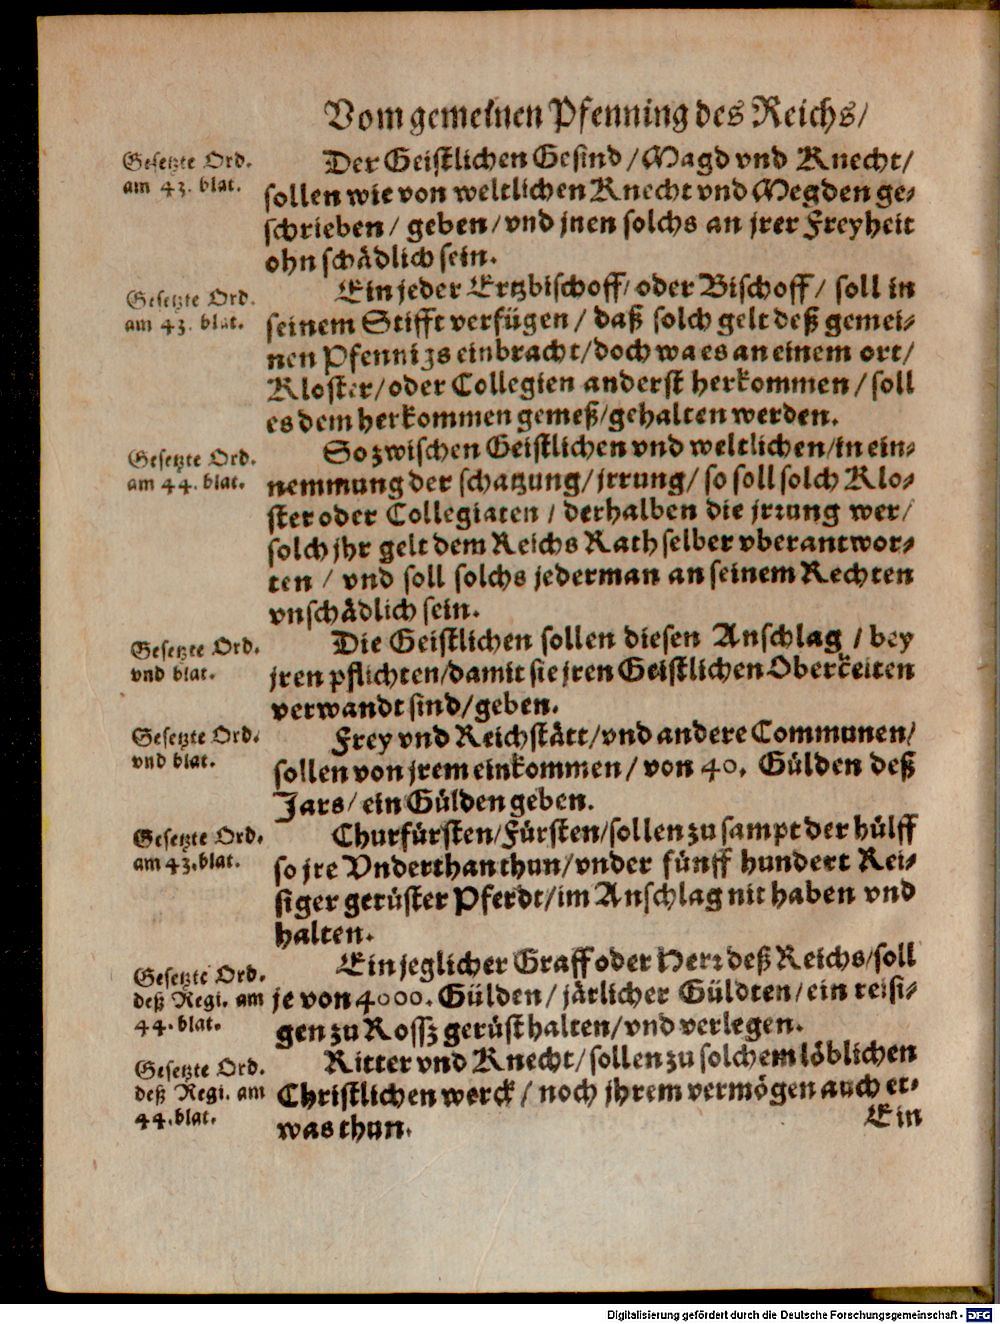 Vom gemeinen Pfenning des Reichs/
Gesetzte Ord.
am 43. blat.
Der Geistlichen Gesind/Magd vnd Knecht/
sollen wie von weltlichen Knecht vnd Megden ge-
schrieben/ geben/vnd jnen solchs an jrer Freyheit
ohn schädlich sein.
Gesetzte Ord.
am 43. blat.
Ein jeder Ertzbischoff/oder Bischoff/ soll in
seinem Stifft verfügen/ daß solch gelt deß gemei-
nen Pfennigs einbracht/doch wa es an einem ort/
Kloster/oder Collegien anderst herkommen/soll
es dem herkommen gemeß/gehalten werden.
Gesetzte Ord.
am 44. blat.
So zwischen Geistlichen vnd weltlichen/in ein-
nemmung der schatzung/jrrung/ so soll solch Klo-
ster oder Collegiaten/ derhalben die jrrung wer/
solch jhr gelt dem Reichs Rath selber vberantwor-
ten/ vnd soll solchs jederman an seinem Rechten
vnschädlich sein.
Gesetzte Ord.
vnd blat.
Die Geistlichen sollen diesen Anschlag/bey
jren pflichten/damit sie jren Geistlichen Oberkeiten
verwandt sind/geben.
Gesetzte Ord.
vnd blat.
Frey vnd Reichstätt/vnd andere Communen/
sollen von jrem einkommen/von 40. Gülden deß
Jars/ein Gülden geben.
Gesetzte Ord.
am 43.blat.
Churfürsten/Fürsten/sollen zu sampt der hülff
so jre Vnderthan thun/vnder fünff hundert Rei-
siger gerüster Pferdt/im Anschlag nit haben vnd
halten.
Gesetzte Ord.
deß Regi. am
44. blat.
Ein jeglicher Graff oder Herr deß Reichs/soll
je von 4000. Gülden/ järlicher Güldten/ein reisi-
gen zu Rossz gerüst halten/vnd verlegen.
Gesetzte Ord.
deß Regi. am
44.blat.
Ritter vnd Knecht/sollen zu solchem löblichen
Christlichen werck/ noch jhrem vermögen auch et-
was thun.
Ein
Digitalisierung gefördert durch die Deutsche Forschungsgemeinschaft - DFG